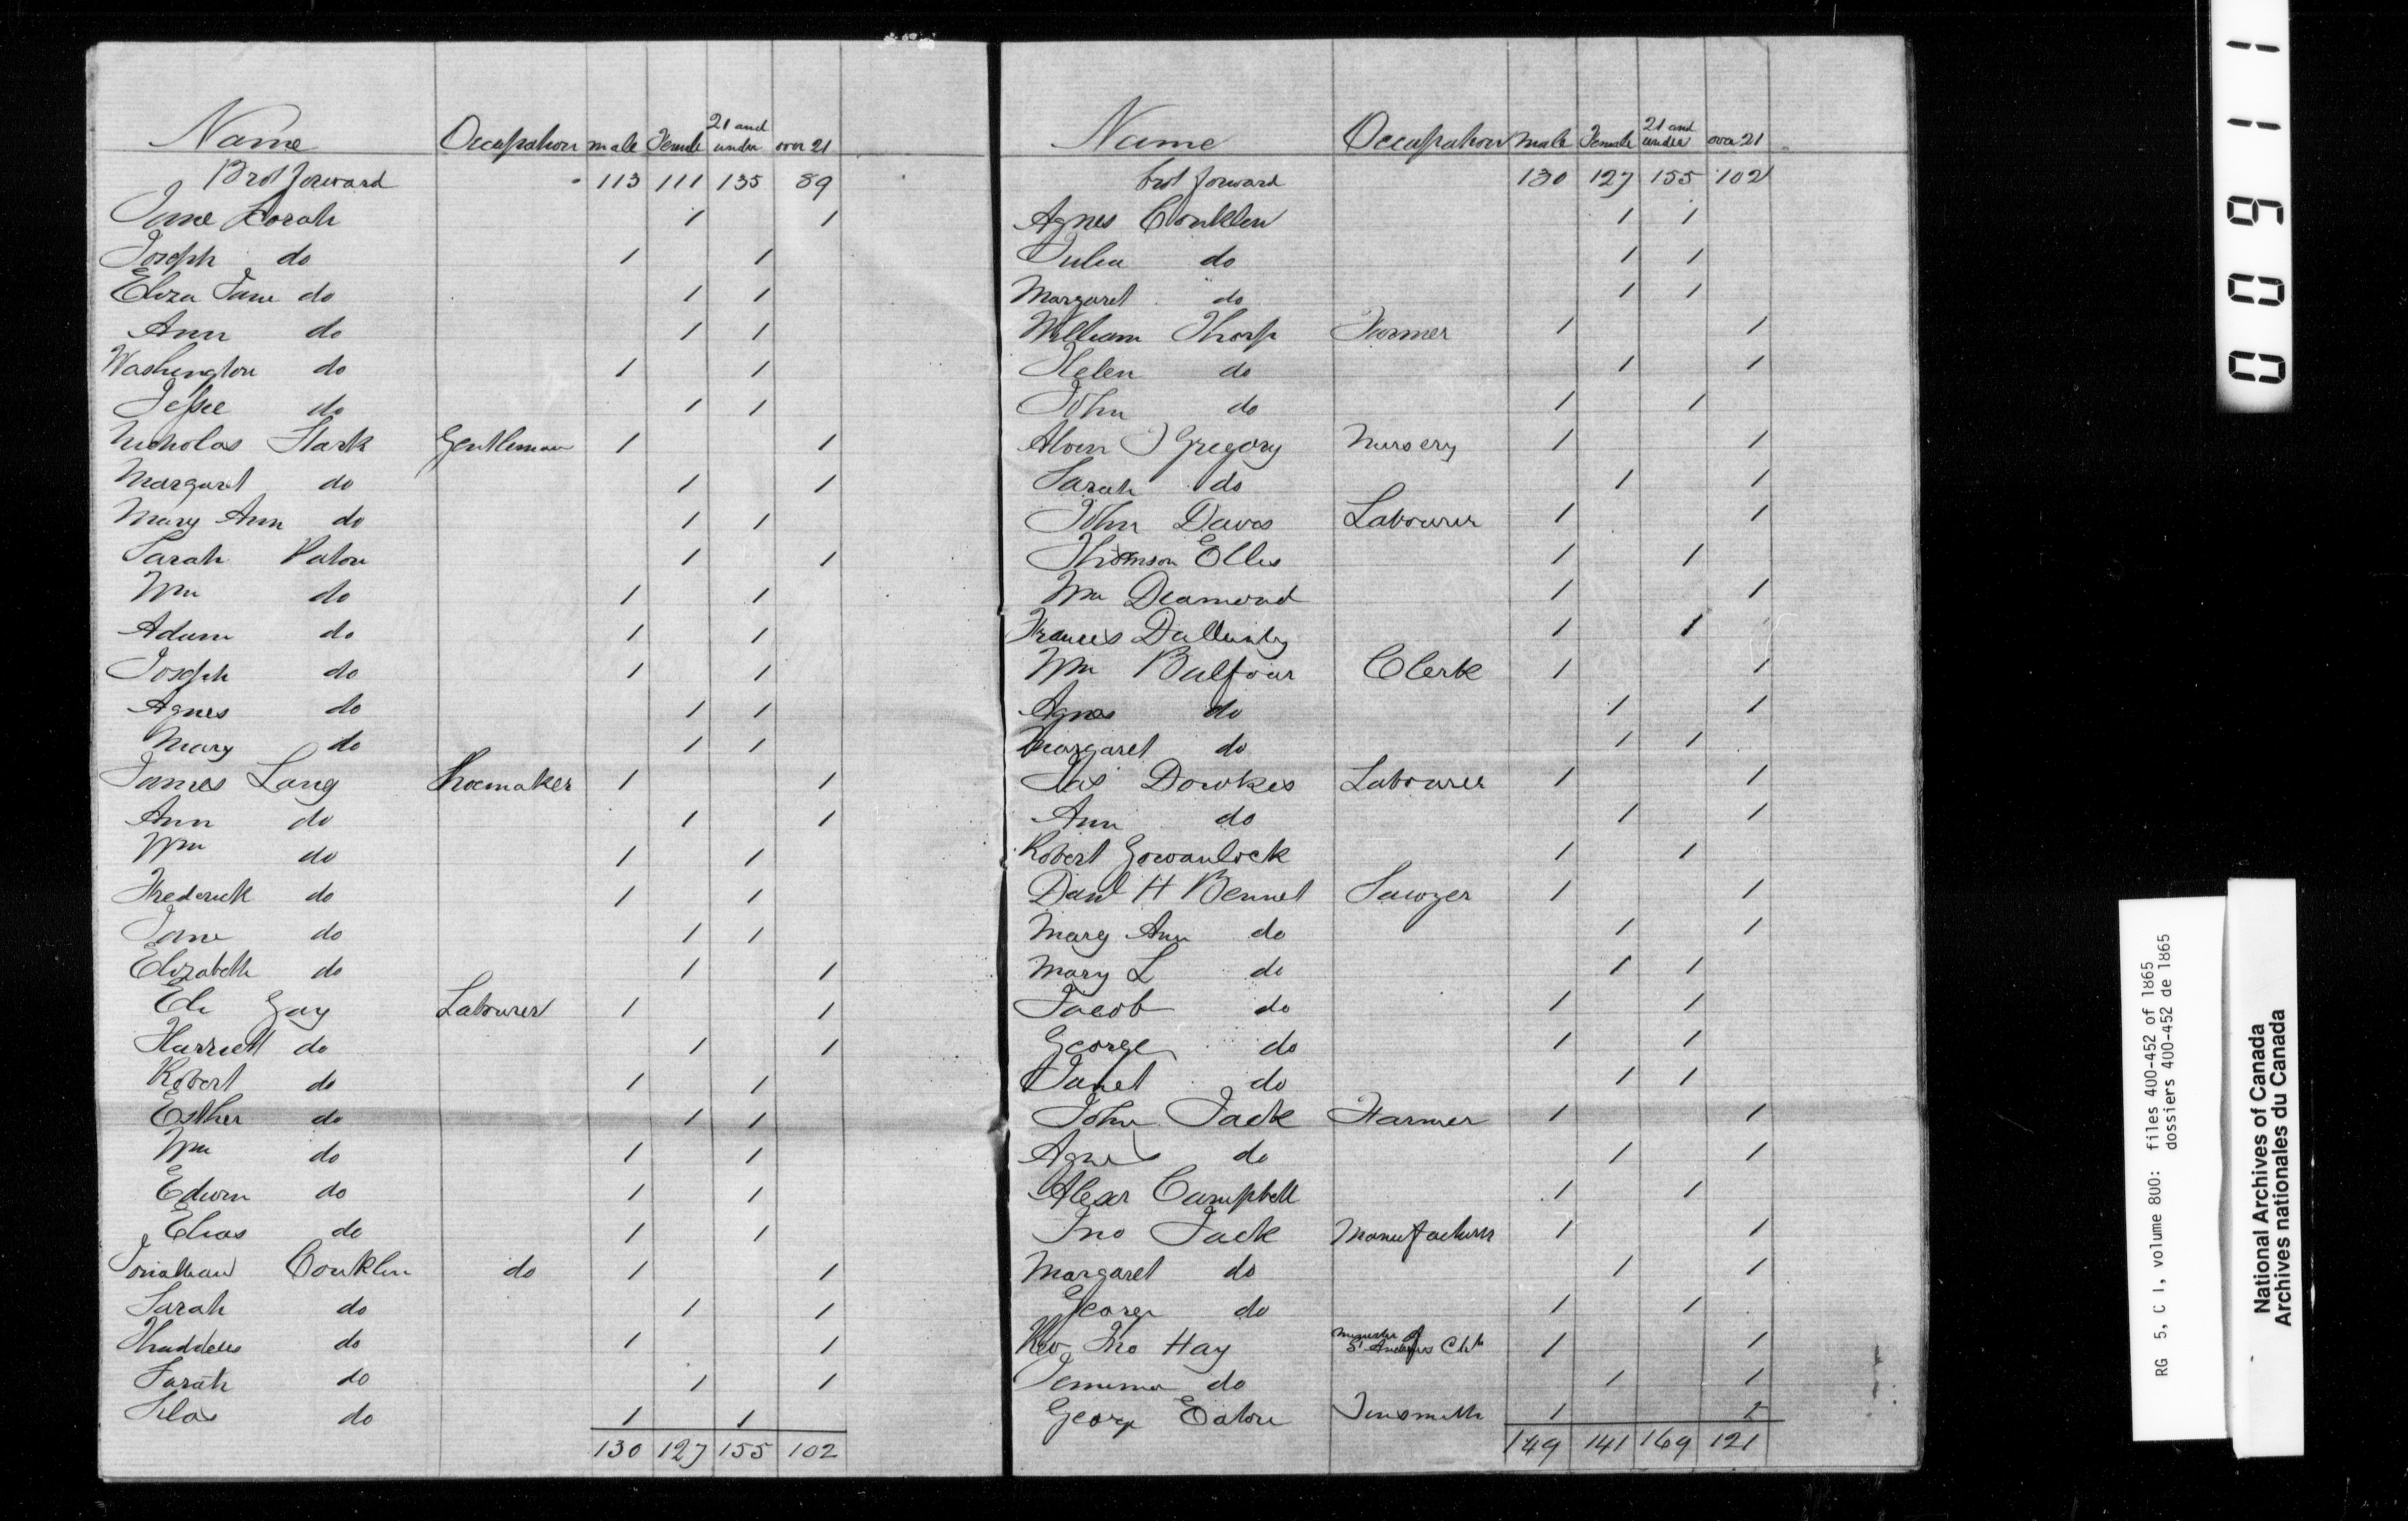 Name Occupation male Female 21 and under over 21
Brot forward 113 111 135 89
Jane Lorah 1 1
Joseph do 1 1
Eliza Jane do 1 1
Ann do 1 1
Washington do 1 1
Jessee do 1 1
Nicholas Stark Gentleman 1 1
Margaret do 1 1
Mary Ann do 1 1
Sarah Paton 1 1
Wm do 1 1
Adam do 1 1
Joseph do 1 1
Agnes do 1 1
Mary do 1 1
James Lang Shoemaker 1 1
Ann do 1 1
Wm do 1 1
Frederick do 1 1
Jane do 1 1
Elizabeth do 1 1
Eli Gay Labourer 1 1
Harriett do 1 1
Robert do 1 1
Esther do 1 1
Wm do 1 1
Edwin do 1 1
Elias do 1 1
Jonathan Conklin do 1 1
Sarah do 1 1
Thaddeus do 1 1
Sarah do 1 1
Silas do 1 1
130 127 155 102
Name Occupation male Female 21 and under over 21
brot forward 130 127 155 102
Agnes Conklin 1 1
Julia do 1 1
Margaret do 1 1
William Thorp Farmer 1 1
Helen do 1 1
John do 1 1
Gregory Nursery 1 1
Sarah do 1 1
John Davis Labourer 1 1
Thomson Ellis 1 1
Wm Deamond 1 1
Frances 1 1
Wm Balfour Clerk 1 1
Agnes do 1 1
Margaret do 1 1
Jas Dowkes Labourer 1 1
Ann do 1 1
Robert Gowanlock 1 1
H Bennet Sawyer 1 1
Mary Ann do 1 1
Mary L do 1 1
Jacob do 1 1
George do 1 1
Janet do 1 1
John Jack Farmer 1 1
Agnes do 1 1
Alexr Campbell 1 1
Jno Jack Manufacturer 1 1
Margaret do 1 1
George do 1 1
Rev Jno Hay Minister of St Andrews Chh 1 1
Jemima do 1 1
George Eaton Tinsmith 1 1
149 141 169 121
000911
RG 5, C 1, volume 800: files 400-452 of 1865
dossiers 400-452 de 1865
National Archives of Canada
Archives nationales du Canada